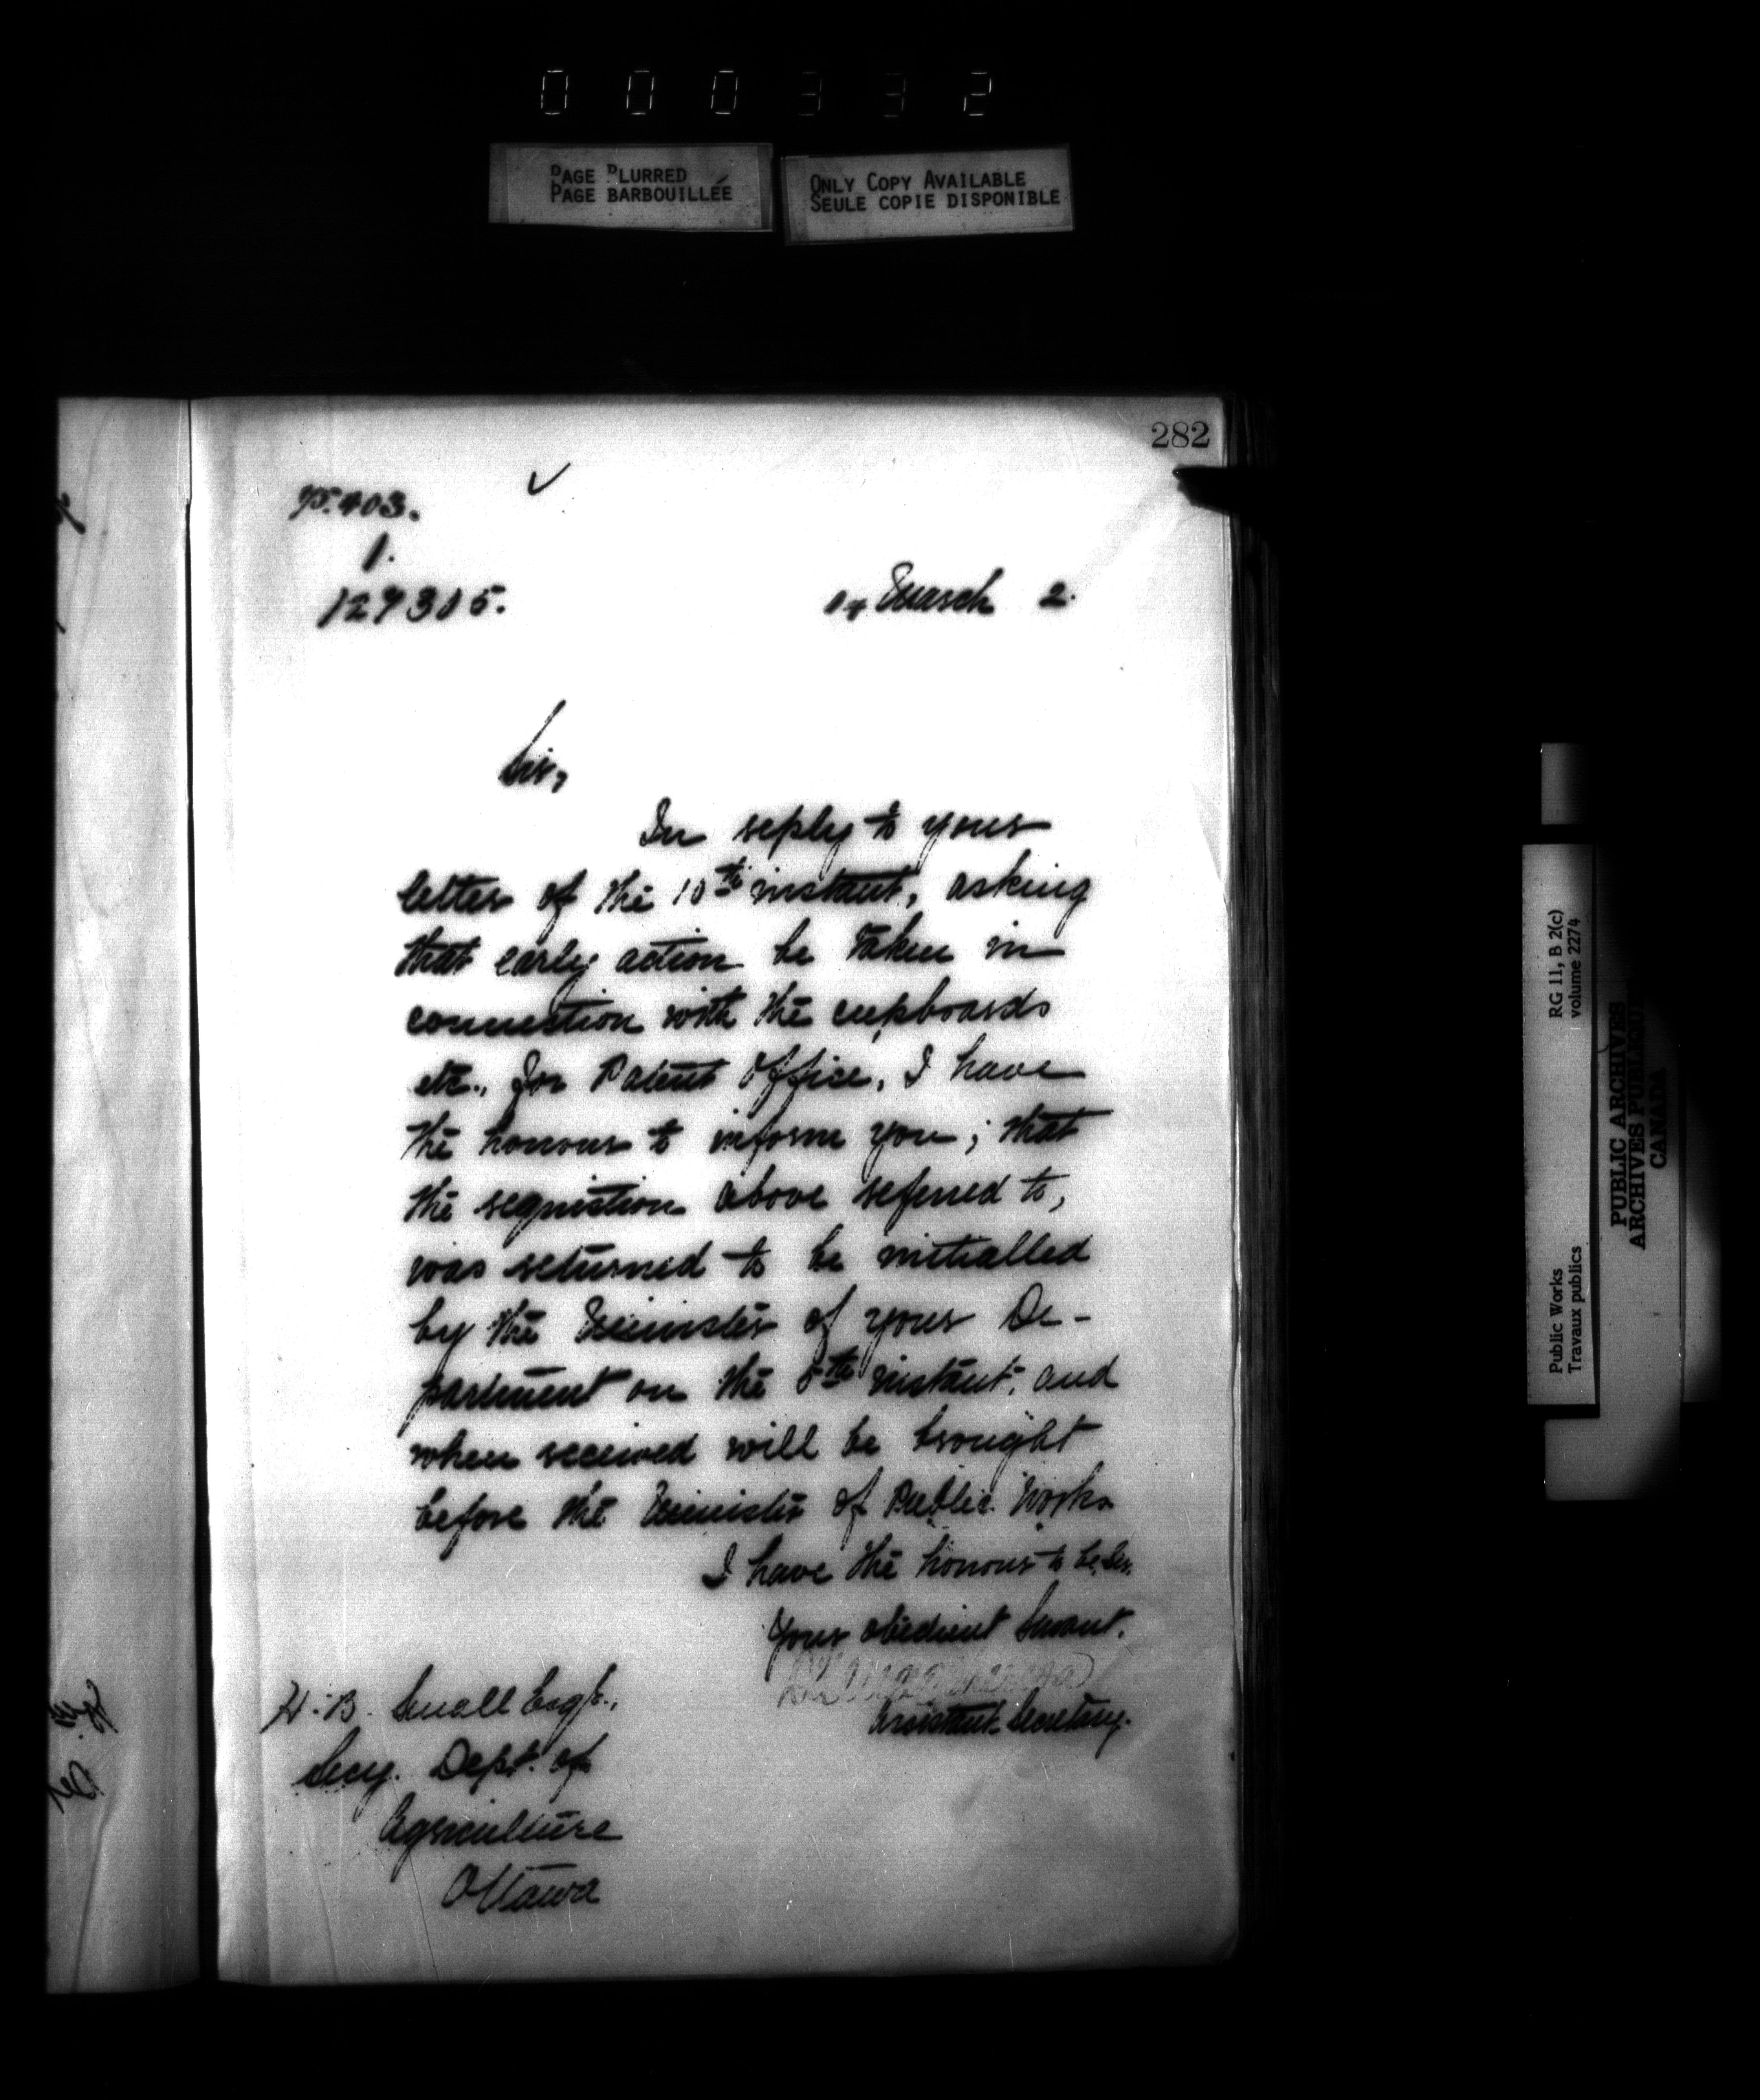 000332
PAGE BLURRED
PAGE BARBOUILLÉE
ONLY COPY AVAILABLE
SEULE COPIE DISPONIBLE
282
403.
1.
129305.
March 2.
Sir,
In reply to your
letter of the 10th instant, asking
that early action be taken in
connection with the cupboards
etc., for Patent Office, I have
the honour to inform you; that
the requistion above referred to,
was returned to be initialled
by the Minister of your De-
partment on the 5th instant, and
when received will be brought
before the Minister of Public Works
I have the honour to be, Sir,
Your obedient Servant.
Assistant Secretary.
H. B. Small Esqr.,
Secy. Dept. of
Agriculture
Ottawa
RG 11, B 2(c)
volume 2274
Public Works
Travaux publics
PUBLIC ARCHIVES
ARCHIVES PUBLIQU
CANADA